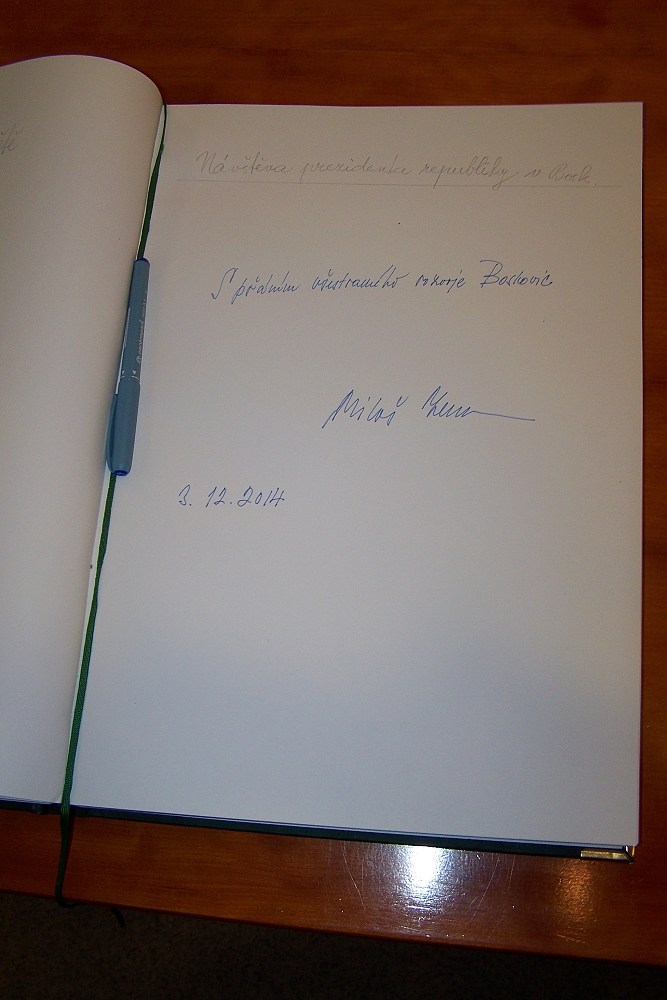 Návštěva prezidenta republiky v Bosk.
S přáním všestranného rozvoje Boskovic
Miloš Zeman
3. 12. 2014